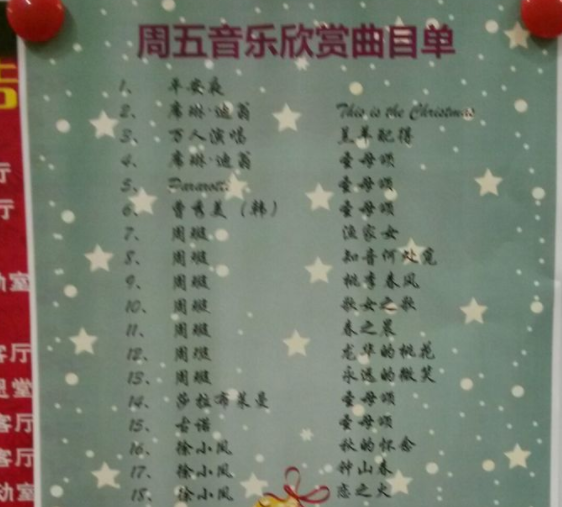 周五音乐欣赏曲目单
1、 平安夜
2、 席琳·迪翁 This is the Christmas
3、 万人演唱 羔羊配得
4、 席琳·迪翁 圣母颂
5、 Pararotti 圣母颂
6、 曹秀美（韩） 圣母颂
7、 周璇 渔家女
8、 周璇 知音何处觅
9、 周璇 桃李春风
10、 周璇 歌女之歌
11、 周璇 春之晨
12、 周璇 龙华的桃花
13、 周璇 永远的微笑
14、 莎拉布莱曼 圣母颂
15、 古诺 圣母颂
16、 徐小凤 秋的怀念
17、 徐小凤 钟山春
18、 徐小凤 恋之火
厅
厅
动室
客厅
客厅
客厅
动室